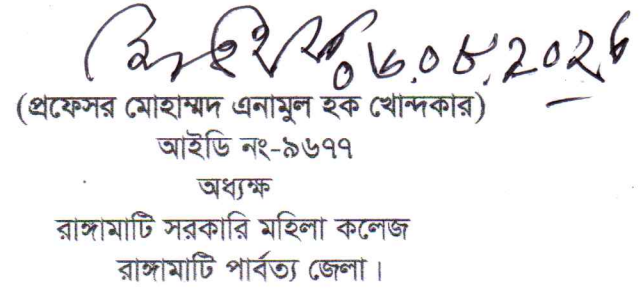 ০৬.০৫.২০২৬
(প্রফেসর মোহাম্মদ এনামুল হক খোন্দকার)
আইডি নং-৯৬৭৭
অধ্যক্ষ
রাঙ্গামাটি সরকারি মহিলা কলেজ
রাঙ্গামাটি পার্বত্য জেলা।